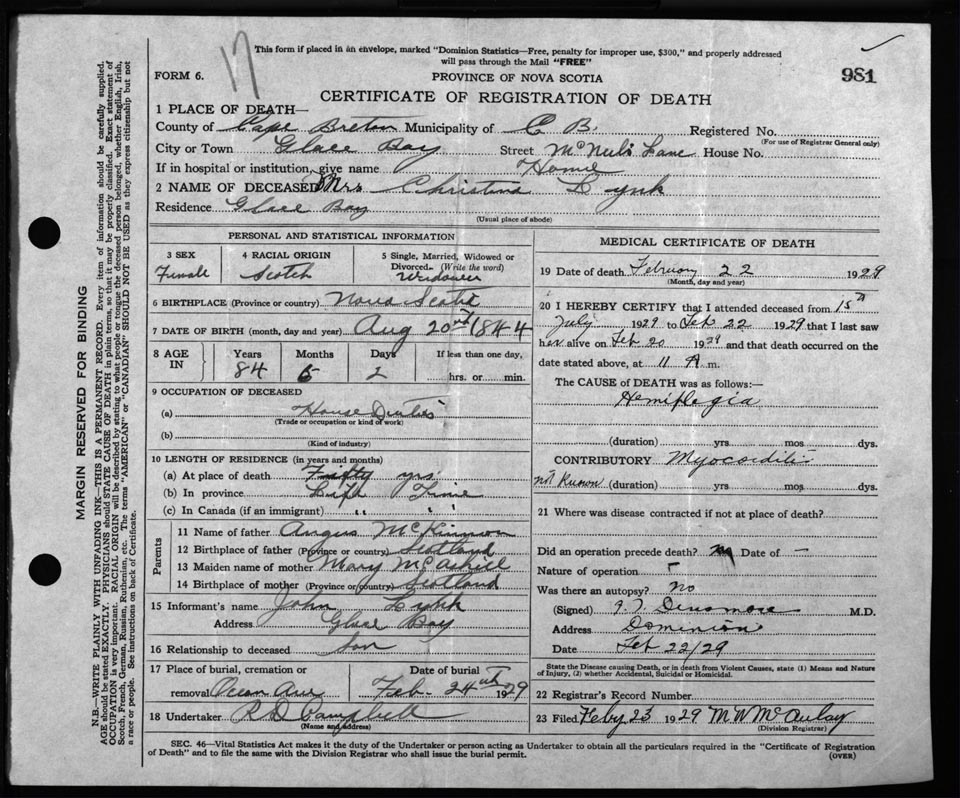 17
This form if placed in an envelope, marked "Dominion Statistics—Free, penalty for improper use, $300," and properly addressed
will pass through the Mail "FREE"
FORM 6.
PROVINCE OF NOVA SCOTIA
981
CERTIFICATE OF REGISTRATION OF DEATH
1 PLACE OF DEATH—
County of Cape Breton Municipality of C B. Registered No.
(For use of Registrar General only)
City or Town Glace Bay Street McNeil's Lane House No.
If in hospital or institution, give name Home
2 NAME OF DECEASED Mrs Christina Lynk
Residence Glace Bay
(Usual place of abode)
PERSONAL AND STATISTICAL INFORMATION
3 SEX
Female
4 RACIAL ORIGIN
Scotch
5 Single, Married, Widowed or
Divorced. (Write the word)
Widower
6 BIRTHPLACE (Province or country) Nova Scotia
7 DATE OF BIRTH (month, day and year) Aug 20th 1844
8 AGE IN
Years Months Days If less than one day,
84 6 2 hrs. or min.
9 OCCUPATION OF DECEASED
(a) House Duties
(Trade or occupation or kind of work)
(b)
(Kind of industry)
10 LENGTH OF RESIDENCE (in years and months)
(a) At place of death Fifty yrs
(b) In province Life Time
(c) In Canada (if an immigrant) " "
Parents
11 Name of father Angus McKinnon
12 Birthplace of father (Province or country) Scotland
13 Maiden name of mother Mary McAskill
14 Birthplace of mother (Province or country) Scotland
15 Informant's name John Lynk
Address Glace Bay
16 Relationship to deceased Son
17 Place of burial, cremation or
removal Ocean Ave
Date of burial
Feb. 24th 1929
18 Undertaker R D Campbell
(Name and address)
MEDICAL CERTIFICATE OF DEATH
19 Date of death February 22 1929
(Month, day and year)
20 I HEREBY CERTIFY that I attended deceased from 15th
July 1929 to Feb 22 1929 that I last saw
her alive on Feb 20 1929 and that death occurred on the
date stated above, at 11 A m.
The CAUSE of DEATH was as follows:—
Hemiplegia
(duration) yrs mos dys.
CONTRIBUTORY Myocarditis
not known (duration) yrs mos dys.
21 Where was disease contracted if not at place of death?
Did an operation precede death? no Date of —
Nature of operation
Was there an autopsy? No
(Signed) Dinsmore M.D.
Address Dominion
Date Feb 22/29
State the Disease causing Death, or in death from Violent Causes, state (1) Means and Nature
of Injury, (2) whether Accidental, Suicidal or Homicidal.
22 Registrar's Record Number
23 Filed Feby 23 1929 M W McAulay
(Division Registrar)
SEC. 46—Vital Statistics Act makes it the duty of the Undertaker or person acting as Undertaker to obtain all the particulars required in the "Certificate of Registration
of Death" and to file the same with the Division Registrar who shall issue the burial permit.
(OVER)
MARGIN RESERVED FOR BINDING
N.B.—WRITE PLAINLY WITH UNFADING INK—THIS IS A PERMANENT RECORD. Every item of information should be carefully supplied.
AGE should be stated EXACTLY. PHYSICIANS should STATE CAUSE OF DEATH in plain terms, so that it may be properly classified. Exact statement of
OCCUPATION is very important. RACIAL ORIGIN will be described by stating to what people or tongue the deceased person belonged, whether English, Irish,
Scotch, French, German, Russian, Ruthenian, etc. The terms "AMERICAN" or "CANADIAN" SHOULD NOT BE USED as they express citizenship but not
a race or people. See instructions on back of Certificate.